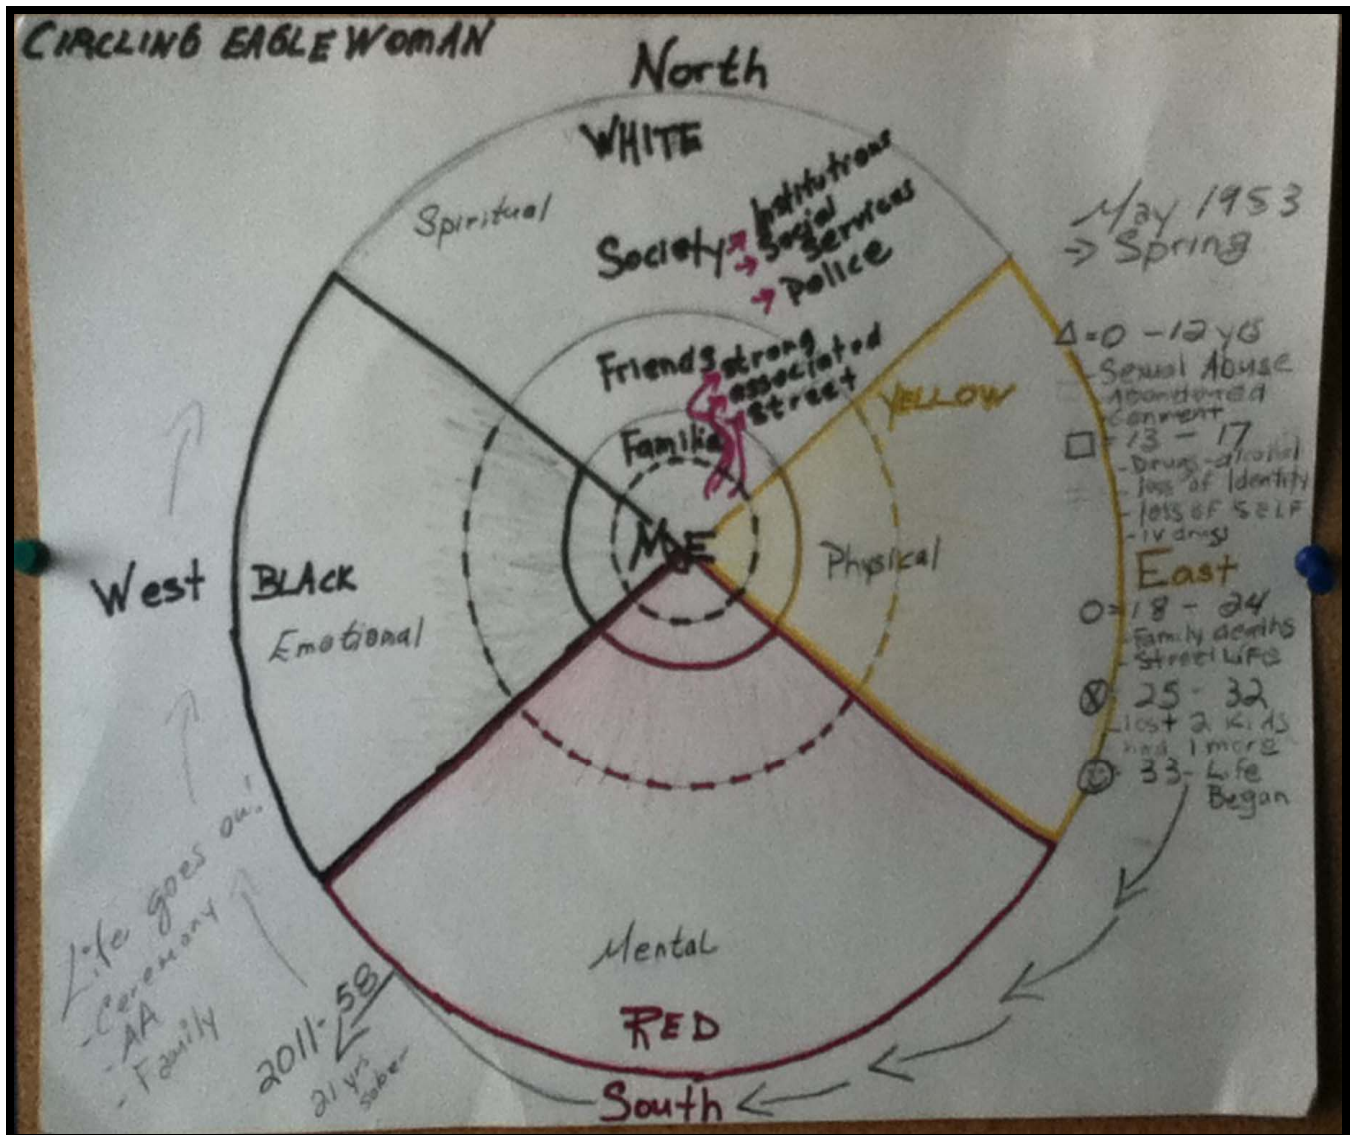 CIRCLING EAGLE WOMAN
North
WHITE
Spiritual
Society → Institutions
→ Social Services
→ Police
Friends strong
associated
street
Familia
ME
YELLOW
Physical
East
West
BLACK
Emotional
Mental
RED
South
May 1953
→ Spring
Δ = 0 - 12 yrs
- Sexual Abuse
- Abandoned
- Conment
□ = 13 - 17
- Drugs - alcohol
- loss of Identity
- loss of SELF
- IV drugs
O = 18 - 24
- Family deaths
- Street Life
25 - 32
- lost 2 kids
had 1 more
33 - Life
Began
2011 - 58
21 yrs
sober
Life goes on!
- Ceremony
- AA
- Family